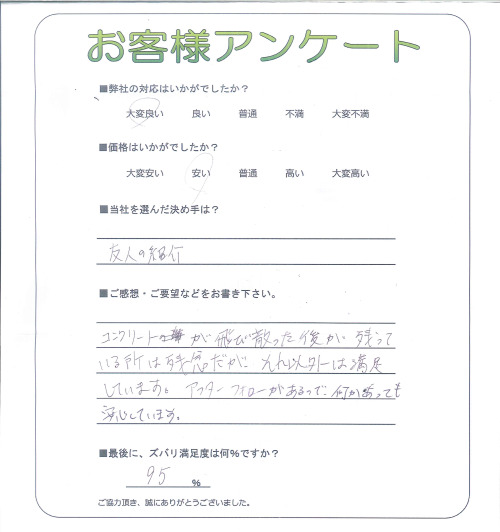 お客様アンケート
■弊社の対応はいかがでしたか？
大変良い 良い 普通 不満 大変不満
■価格はいかがでしたか？
大変安い 安い 普通 高い 大変高い
■当社を選んだ決め手は？
友人の紹介
■ご感想・ご要望などをお書き下さい。
コンクリートが飛び散った後が残って
いる所は残念だが、それ以外は満足
しています。アフターフォローがあるので何かあっても
安心しています。
■最後に、ズバリ満足度は何%ですか？
95 %
ご協力頂き、誠にありがとうございました。